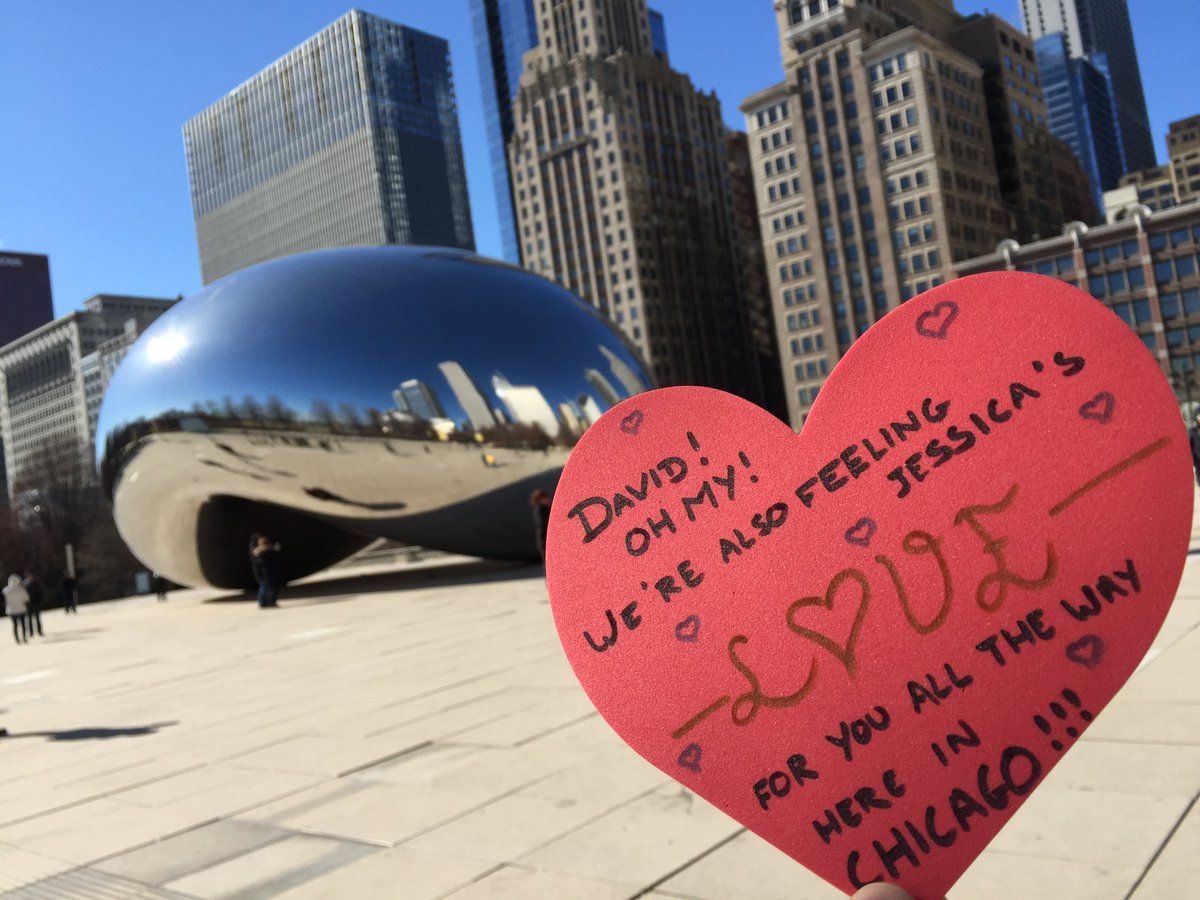 DAVID!
OH MY!
WE'RE ALSO FEELING
JESSICA'S
LOVE
FOR YOU ALL THE WAY
HERE IN
CHICAGO!!!